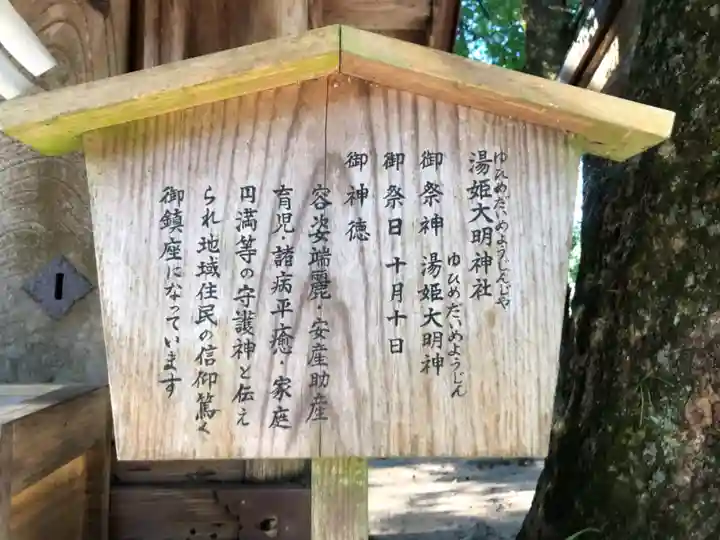 ゆひめだいめようじんじや
湯姫大明神社
御祭神 湯姫大明神
ゆひめだいめようじん
御祭日 十月十日
御神徳
容姿端麗・安産助産
育児・諸病平癒・家庭
円満等の守護神と伝え
られ地域住民の信仰篤く
御鎮座になっています